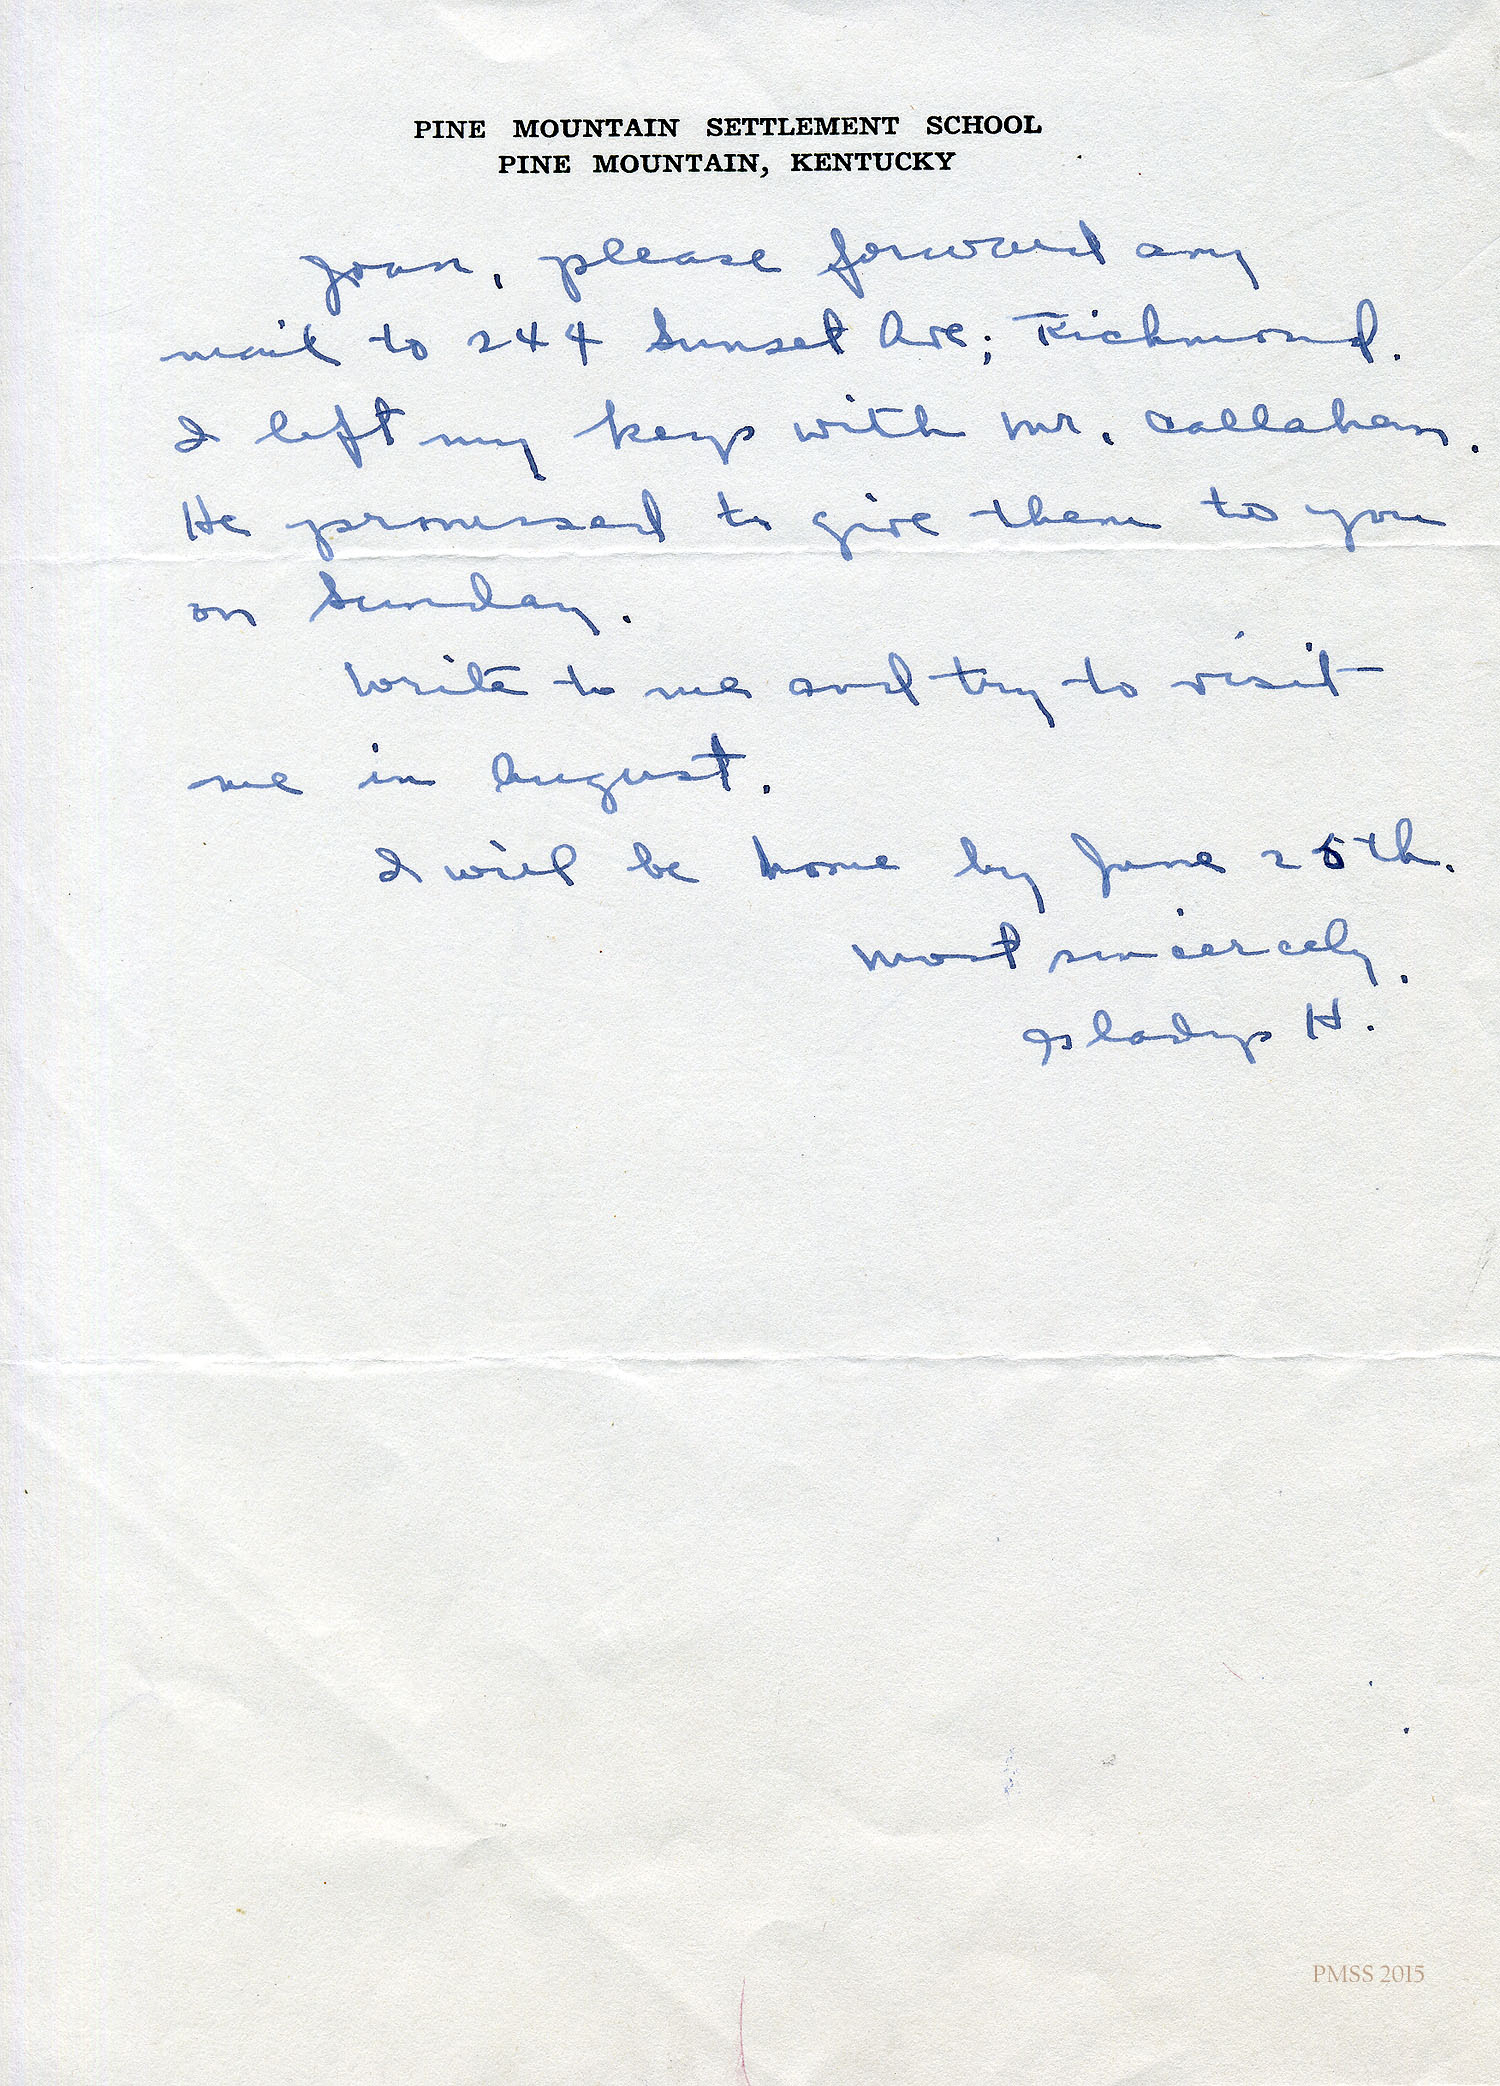 PINE MOUNTAIN SETTLEMENT SCHOOL
PINE MOUNTAIN, KENTUCKY
Joan, please forward any
mail to 244 Sunset Ave; Richmond.
I left my keys with Mr. Callahan.
He promised to give them to you
on Sunday.
Write to me and try to visit
me in August.
I will be home by June 25th.
Most sincerely,
Gladys H.
PMSS 2015